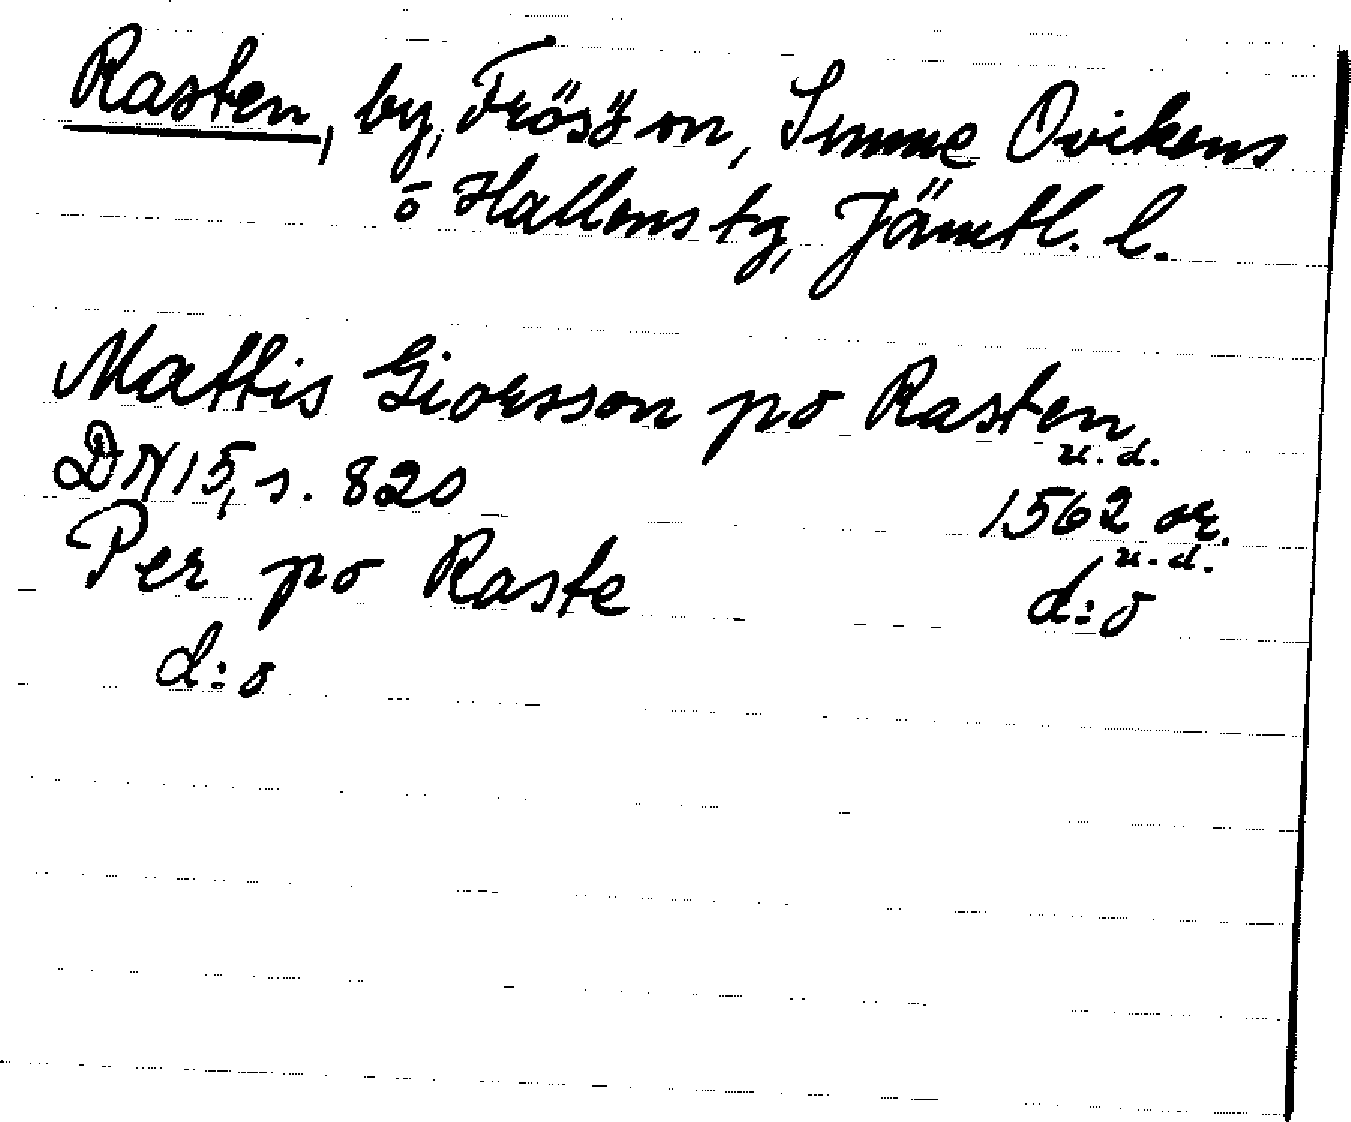 Rasten, by, Frösön, Sunne Ovikens
o Hallens tg, Jämtl. l.
Mattis Giorsson po Rasten
u. d.
DN 15, s. 820 1562 or.
u. d.
Per po Raste d:o
d:o